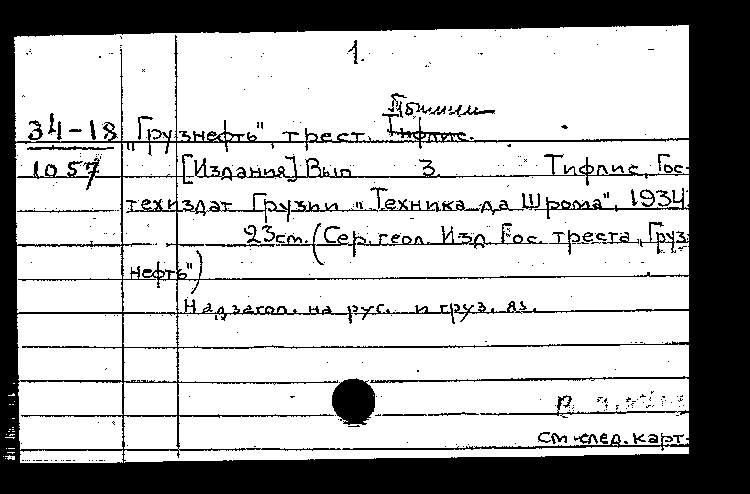 1.
Тбилиси
34-18 „Грузнефть", трест. Тифлис.
1057 [Издания] Вып 3. Тифлис, Гос-
техиздат Грузии „Техника да Шрома", 1934
23 см. (Сер. геол. Изд. Гос. треста „Груз-
нефть")
Надзагол. на рус. и груз. яз.
см. след. карт.